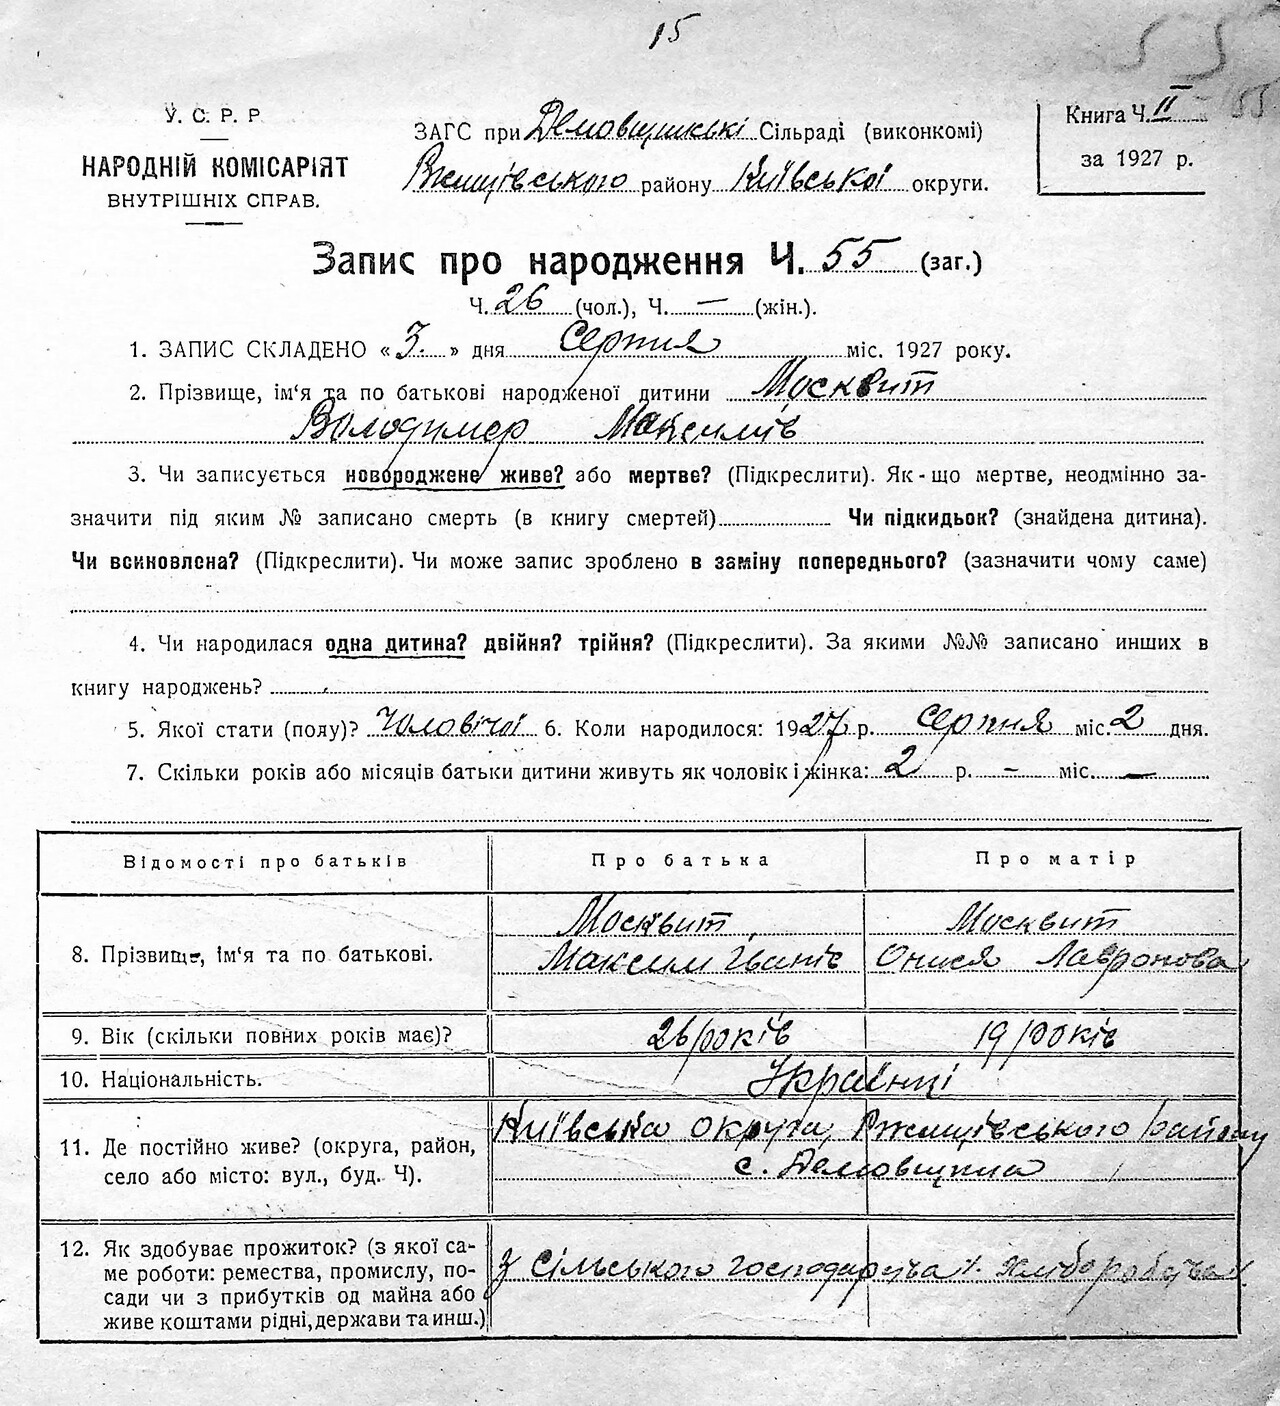 15
55
У. С. Р. Р
НАРОДНІЙ КОМІСАРІЯТ
ВНУТРІШНІХ СПРАВ.
ЗАГС при Демовщинські Сільраді (виконкомі)
Ржищівського району Київської округи.
Книга Ч. II
за 1927 р.
Запис про народження Ч. 55 (заг.)
Ч. 26 (чол.), Ч. — (жін.).
1. ЗАПИС СКЛАДЕНО « 3. » дня Серпня міс. 1927 року.
2. Прізвище, ім‘я та по батькові народженої дитини Москвит
Володимер Максимів
3. Чи записується новороджене живе? або мертве? (Підкреслити). Як-що мертве, неодмінно за-
значити під яким № записано смерть (в книгу смертей) Чи підкидьок? (знайдена дитина).
Чи всиновлена? (Підкреслити). Чи може запис зроблено в заміну попереднього? (зазначити чому саме)
4. Чи народилася одна дитина? двійня? трійня? (Підкреслити). За якими №№ записано инших в
книгу народжень?
5. Якої стати (полу)? Чоловічої 6. Коли народилося: 1927 р. Серпня міс. 2 дня.
7. Скільки років або місяців батьки дитини живуть як чоловік і жінка: 2 р. – міс. —
Відомості про батьків
Про батька
Про матір
8. Прізвище, ім‘я та по батькові.
Москвит
Максим Іванів
Москвит
Онися Лавронова
9. Вік (скільки повних років має)?
26 років
19 років
10. Національність.
Українці
11. Де постійно живе? (округа, район,
село або місто: вул., буд. Ч).
Київська округа, Ржищівського району
с. Демовщина
12. Як здобуває прожиток? (з якої са-
ме роботи: ремества, промислу, по-
сади чи з прибутків од майна або
живе коштами рідні, держави та инш.)
З сільського господарства